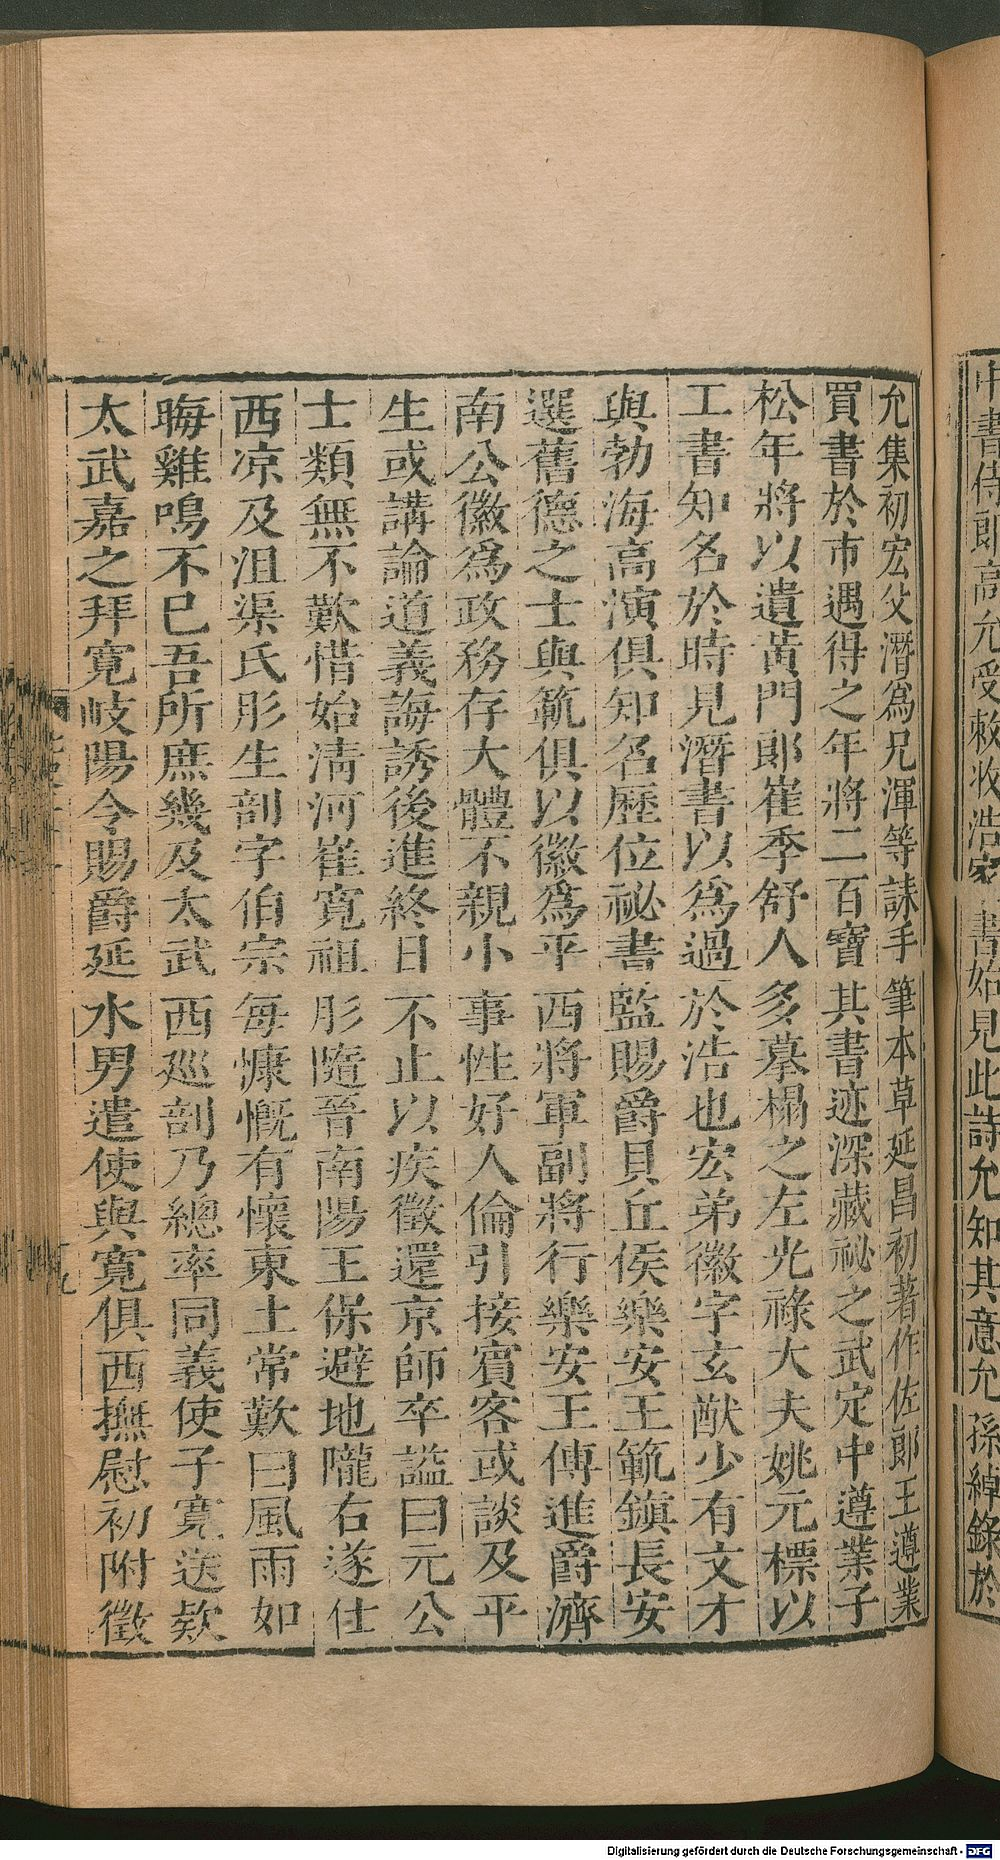 中書侍郎高允受敕收浩家書始見此詩允知其意允孫綽錄於
允集初宏父潛爲兄渾等誄手筆本草延昌初著作佐郎王遵業
買書於市遇得之年將二百寶其書迹深藏祕之武定中遵業子
松年將以遺黃門郎崔季舒人多摹榻之左光祿大夫姚元標以
工書知名於時見潛書以爲過於浩也宏弟徽字玄猷少有文才
與勃海高演俱知名歷位祕書監賜爵貝丘侯樂安王範鎮長安
選舊德之士與範俱以徽爲平西將軍副將行樂安王傳進爵濟
南公徽爲政務存大體不親小事性好人倫引接賓客或談及平
生或講論道義誨誘後進終日不止以疾徵還京師卒謚曰元公
士類無不歎惜始清河崔寬祖肜隨晉南陽王保避地隴右遂仕
西凉及沮渠氏肜生剖字伯宗每慷慨有懷東土常歎曰風雨如
晦雞鳴不已吾所庶幾及太武西巡剖乃總率同義使子寬送款
太武嘉之拜寬岐陽令賜爵延水男遣使與寬俱西撫慰初附徵
九
Digitalisierung gefördert durch die Deutsche Forschungsgemeinschaft - DFG